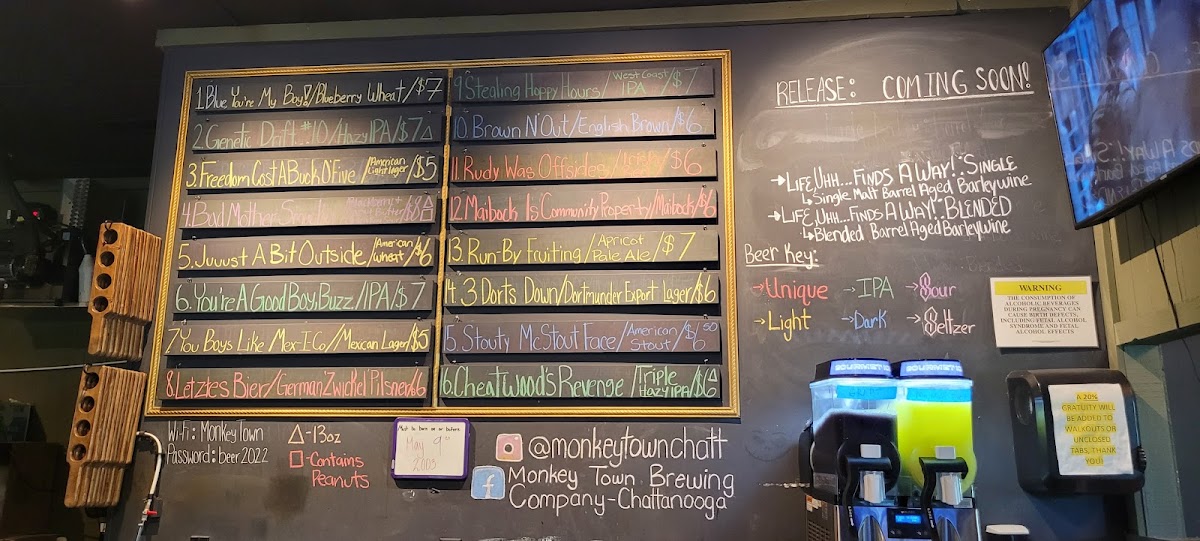 1. Blue You're My Boy!/Blueberry Wheat/$7
2. Genetic Drift #10/Hazy IPA/$7△
3. Freedom Cost A Buck O'Five/American Light Lager/$5
4. Bad Mother
5. Juuust A Bit Outside/American Wheat/$6
6. You're A Good Boy, Buzz/IPA/$7
7. You Boys Like Mex-I-Co/Mexican Lager/$5
8. Letztes Bier/German "Zwickel" Pilsner/$6
9. Stealing Hoppy Hours/West Coast IPA/$7
10. Brown N' Out/English Brown/$6
11. Rudy Was Offsides/ $6
12. Maibock Is Community Property/Maibock/$6
13. Run-By Fruiting/Apricot Pale Ale/$7
14. 3 Dorts Down/Dortmunder Export Lager/$6
15. Stouty McStout Face/American Stout/$6.50
16. Cheatwood's Revenge/Triple Hazy IPA/$6△
RELEASE: COMING SOON!
→Life, Uhh...Finds A Way!: Single
↳Single Malt Barrel Aged Barleywine
→Life, Uhh...Finds A Way!: Blended
↳Blended Barrel Aged Barleywine
Beer Key:
→Unique →IPA →Sour
→Light →Dark →Seltzer
WARNING
THE CONSUMPTION OF
ALCOHOLIC BEVERAGES
DURING PREGNANCY CAN
CAUSE BIRTH DEFECTS,
INCLUDING FETAL ALCOHOL
SYNDROME AND FETAL
ALCOHOL EFFECTS.
Wi-fi: MonkeyTown
Password: beer2022
△-13oz
□-Contains
Peanuts
Must be born on or before
May 9th
2003
@monkeytownchatt
Monkey Town Brewing
Company-Chattanooga
A 20%
GRATUITY WILL
BE ADDED TO
WALKOUTS OR
UNCLOSED
TABS, THANK
YOU!